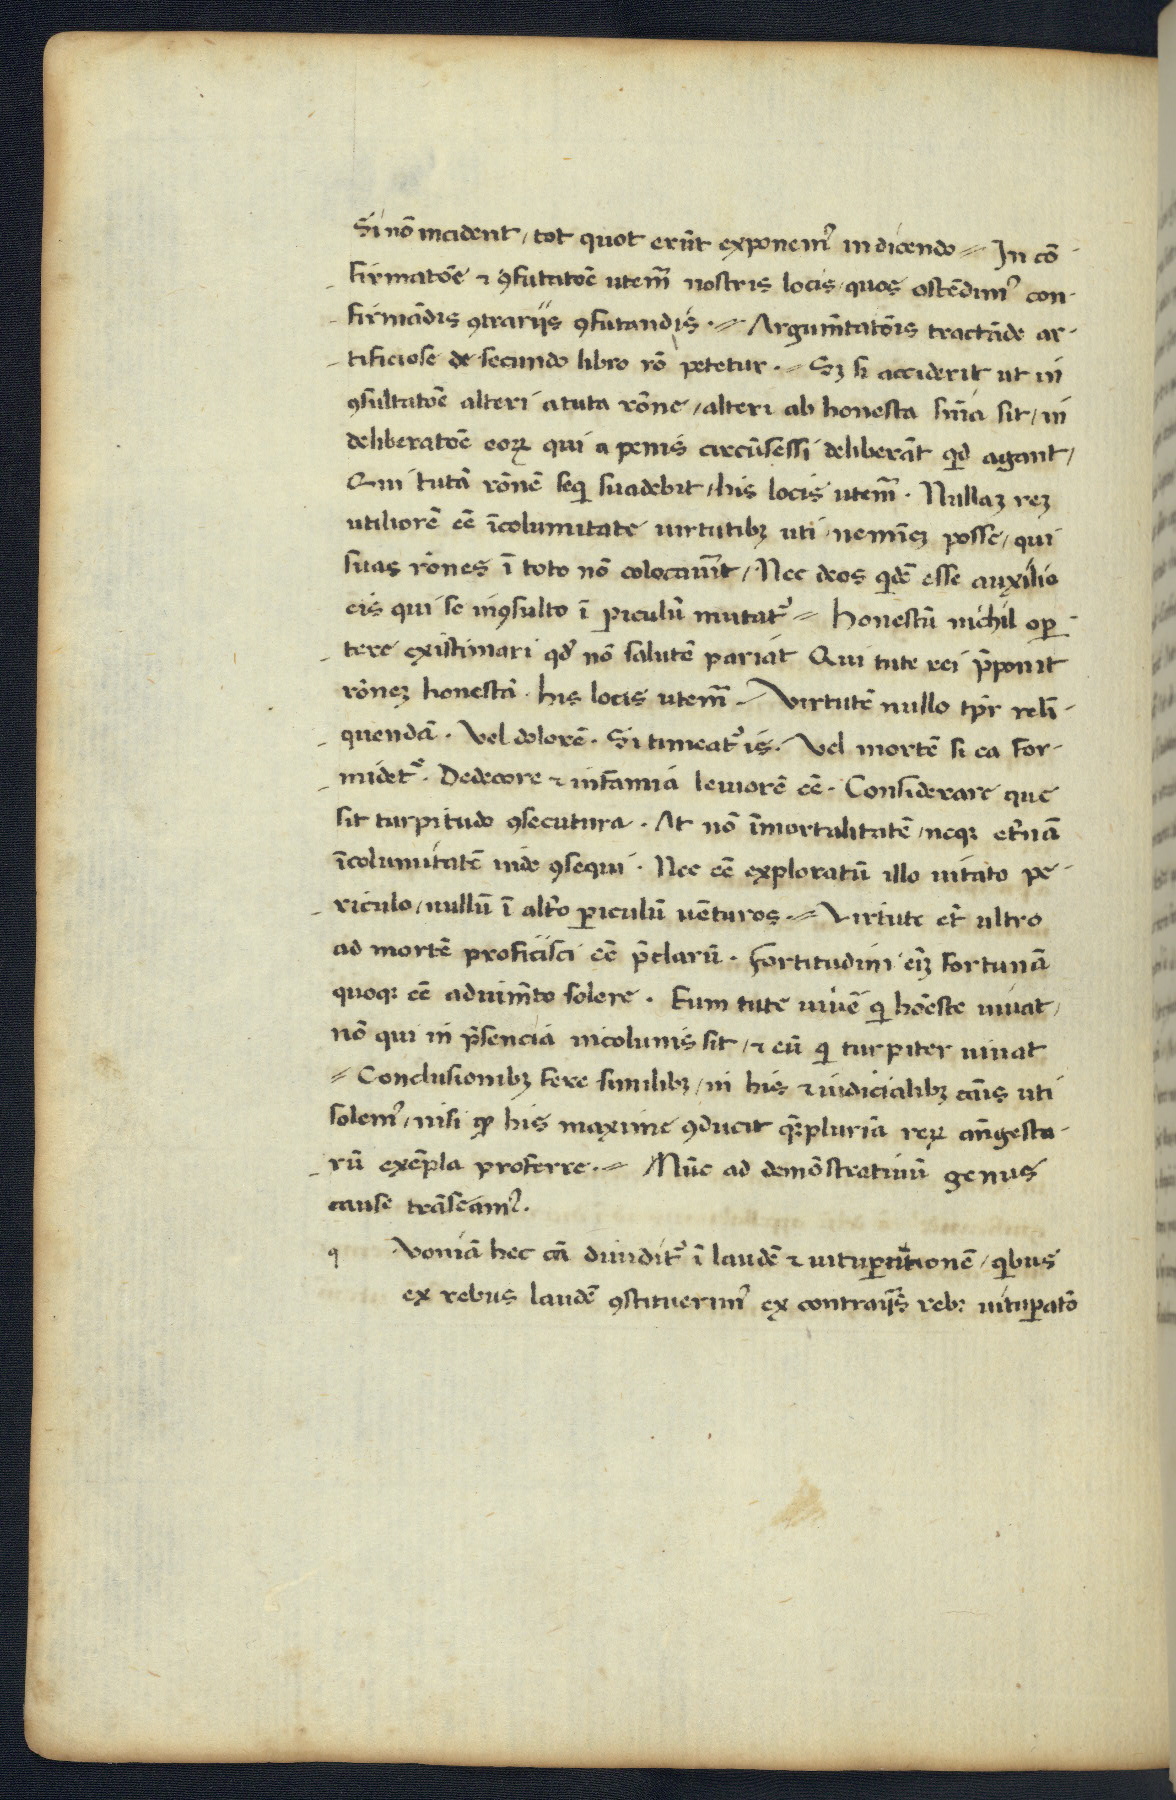 Si nō incidērit, tot quot erūt exponemꝰ in dicendo = In cō
firmatōe ⁊ ꝯfutatōe utemᷓ nostris locis quos ostēdimꝰ con
firmādis ꝯtrarijs ꝯfutandis = Argumētatōis tractāde ar
tificiose de secundo libro rō petetur. = Sꝫ si acciderit ut in
ꝯsultatōe alteri a tuta rōne, alteri ab honesta sn̄ia sit, in
deliberatōe eoꝝ qui a penis circūsessi deliberāt qd agant,
Qui tutā rōnē seqi suadebit, his locis utemᷓ. Nullaꝫ reꝫ
utiliorē eē īcolumitate uirtutibꝫ uti nemīeꝫ posse, qui
suas rōnes ī toto nō colocauerit, Nec deos qdē esse auxilio
eis qui se inꝯsulto ī ꝑiculū mutātꝰ = honestū nichil opor
tere existimari qđ nō salutē pariat Qui tute rei p̄ponit
rōneꝫ honestā. his locis utemᷓ. Virtutē nullo tp̄r reli
quendā. Vel dolorē. Si timeatꝰ is. Vel mortē si ea for
midetꝰ. Dedecore ⁊ infamia leuiorē eē. Considerare que
sit turpitudo ꝯsecutura. At nō īmortalitatē, neqꝫ et̄nā
īcolumitatē inde ꝯsequi. Nec eē exploratū illo uitato pe
riculo, nullū ī alt̄o ꝑiculū uēturos. = Virtute et̄ ultro
ad mortē proficisci eē p̄clarū. Fortitudini eīꝫ fortunā
quoqꝫ eē aduimēto solere. Eum tute uiuē qi hōeste uiuat,
nō qui in p̄sencia incolumis sit, ⁊ eū qi turpiter uiuat
= Conclusionibꝫ fere similibꝫ, in his ⁊ iudicialibꝫ cāis uti
solemꝰ, nisi ꝙ his maxime ꝯducit qᷓꝫ pluria reꝝ an̄ gesta
rū exēpla proferre. = Nūc ad demōstratiuū genus
cause trāseamꝰ.
q Voniā hec cā diuiditꝰ ī laudē ⁊ uituꝑationē, qibus
ex rebus laudē ꝯstituerimꝰ ex contrarijs rebꝫ uituꝑatō